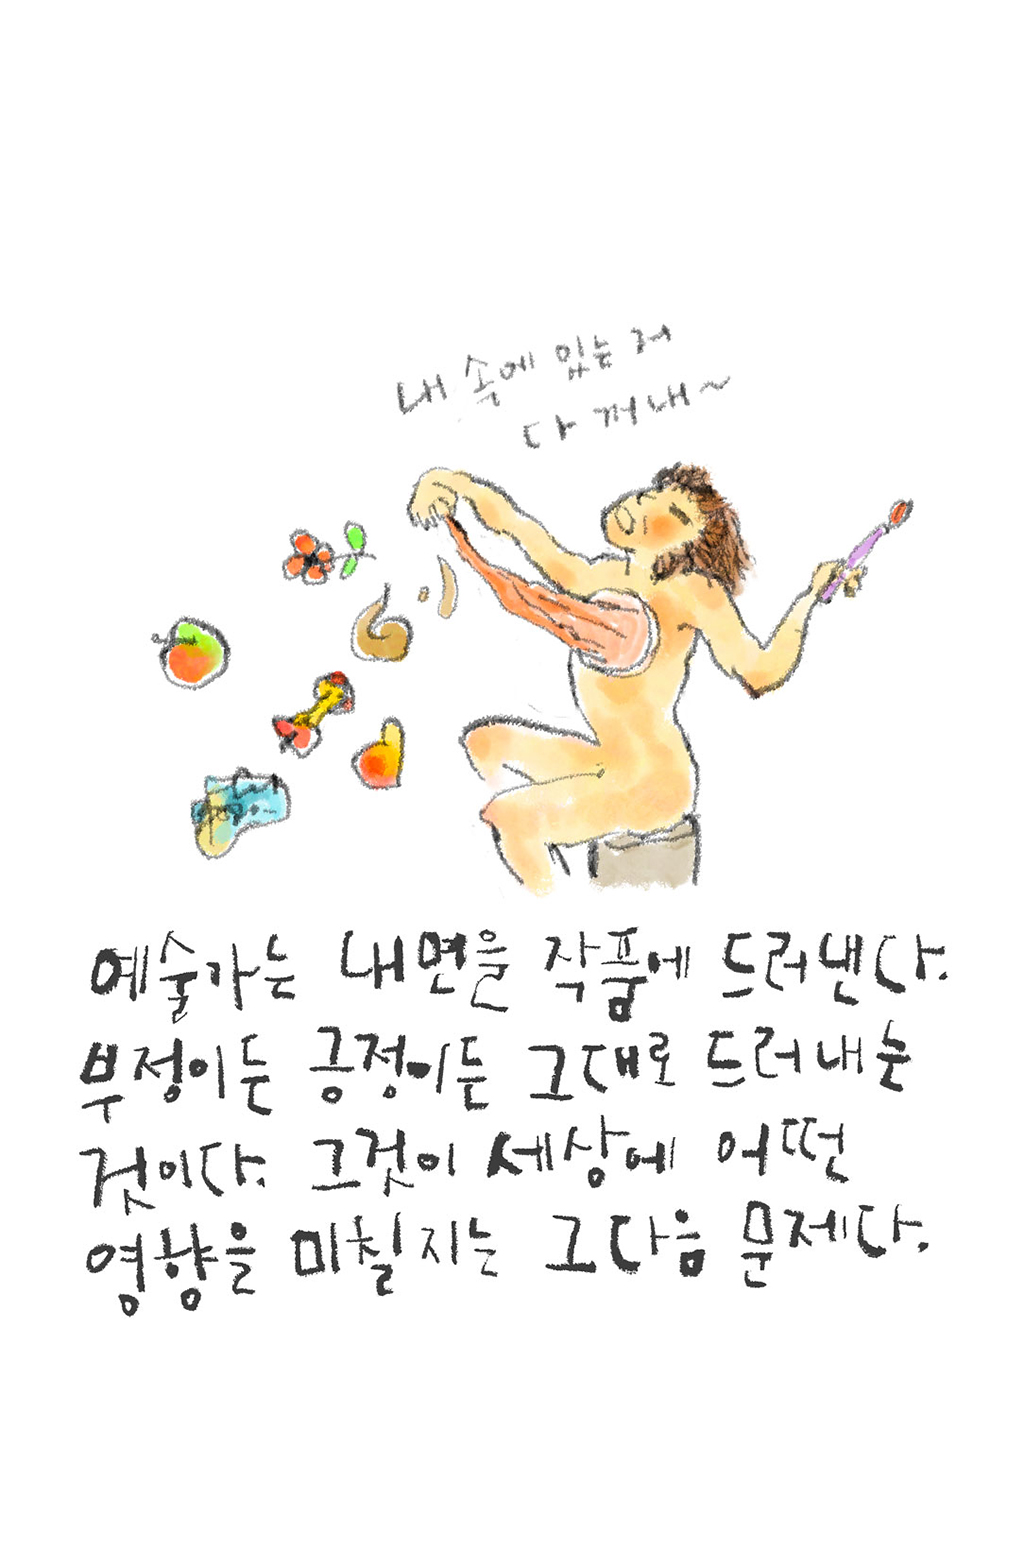 내 속에 있는 거
다 꺼내~
예술가는 내면을 작품에 드러낸다.
부정이든 긍정이든 그대로 드러내는
것이다. 그것이 세상에 어떤
영향을 미칠지는 그다음 문제다.